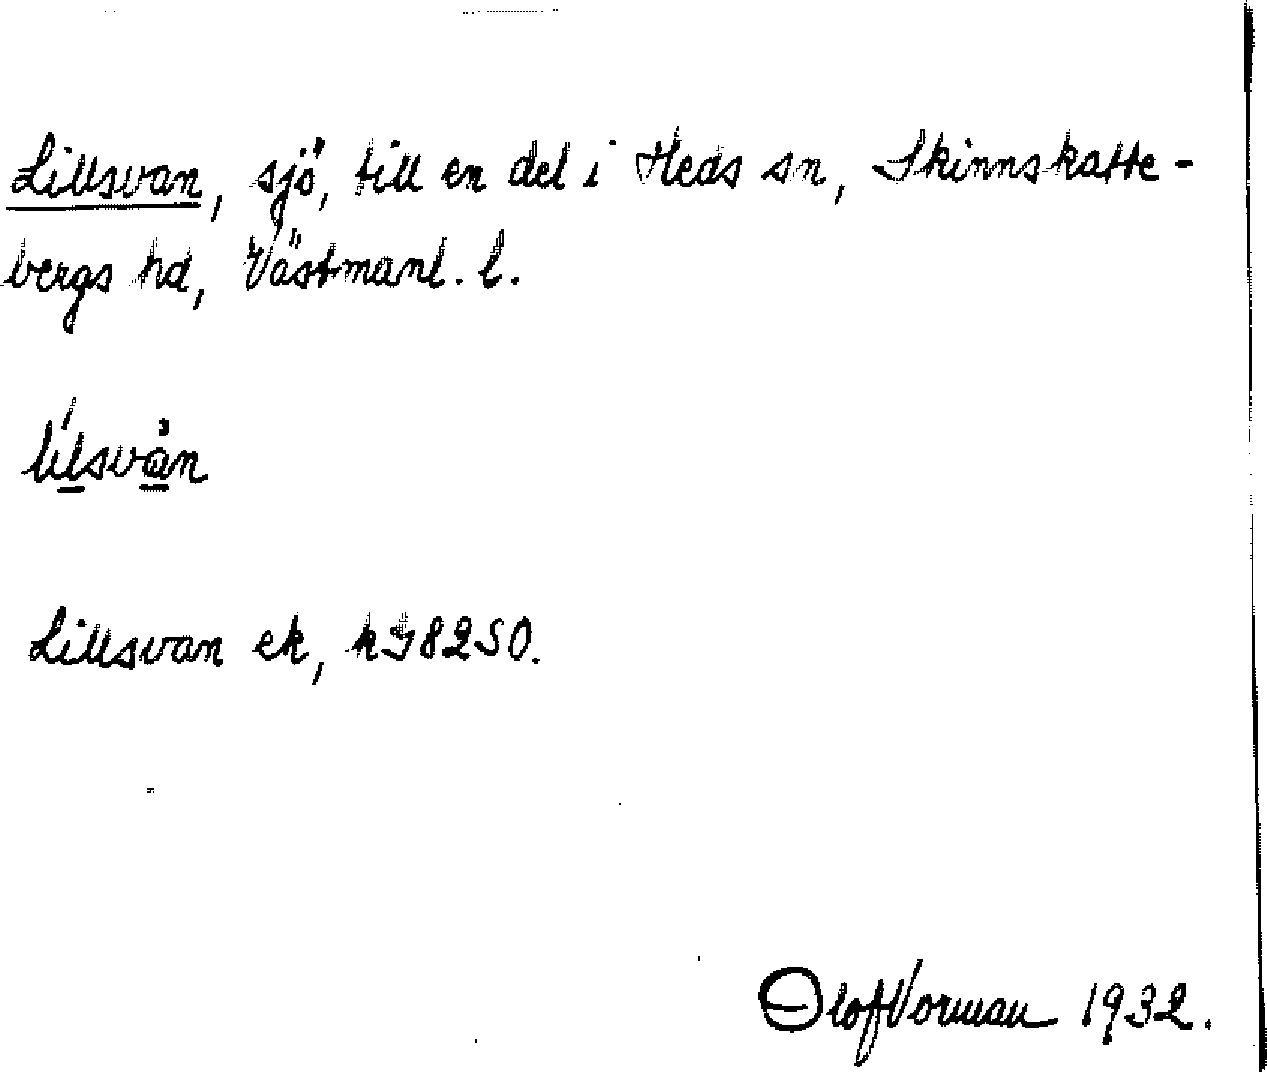 Lillsvan, sjö, till en del i Heds sn, Skinnskatte-
bergs hd, Västmanl. l.
Lillsvan ek,
Olof Vorman 1932.